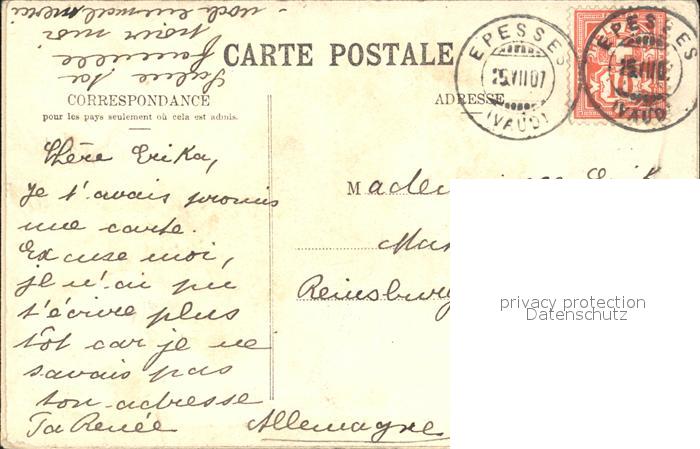 noch einmal merci
pour moi
famille
Salue ta
CARTE POSTALE
CORRESPONDANCE
pour les pays seulement où cela est admis.
ADRESSE
EPESSES
25.VII.07
(VAUD)
EPESSES
(VAUD)
Chère Erika,
Je t'avais promis
une carte.
Excuse moi,
je n'ai pu
t'écrire plus
tôt car je ne
savais pas
ton adresse
Ta Renée
Reinsburg
Allemagne
privacy protection
Datenschutz